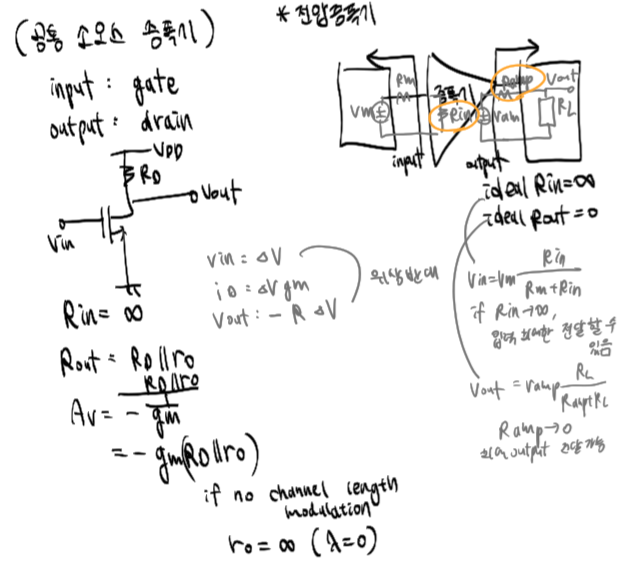 (공통 소오스 증폭기)
input : gate
output : drain
VDD
RD
Vout
Vin
Rin = ∞
Rout = RD || ro
Av = - RD || ro / 1/gm
= - gm(RD || ro)
if no channel length
modulation
ro = ∞ (λ=0)
vin : ΔV
iD : ΔV gm
Vout : - R ΔV
위상반대
* 전압증폭기
Rm
Vm
증폭기
Rin
Ramp
Vam
Vout
RL
input
output
ideal Rin = ∞
ideal Rout = 0
Vin = Vm Rin / Rm + Rin
if Rin → ∞,
입력 최대한 전달할 수
있음
Vout = Vamp RL / Ramp + RL
Ramp → 0
최대 output 전달 가능